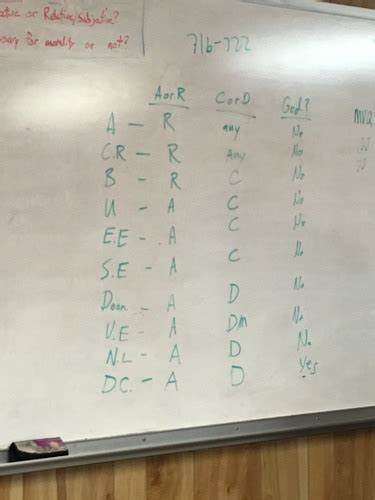 or Relative/subjective?
for morality or not?
716-722
AorR CorD God?
A - R any No
C.R - R Any No
B - R C No
U - A C No
E.E - A C No
S.E - A C No
Deon - A D No
V.E - A DM No
N.L - A D No
DC. - A D Yes